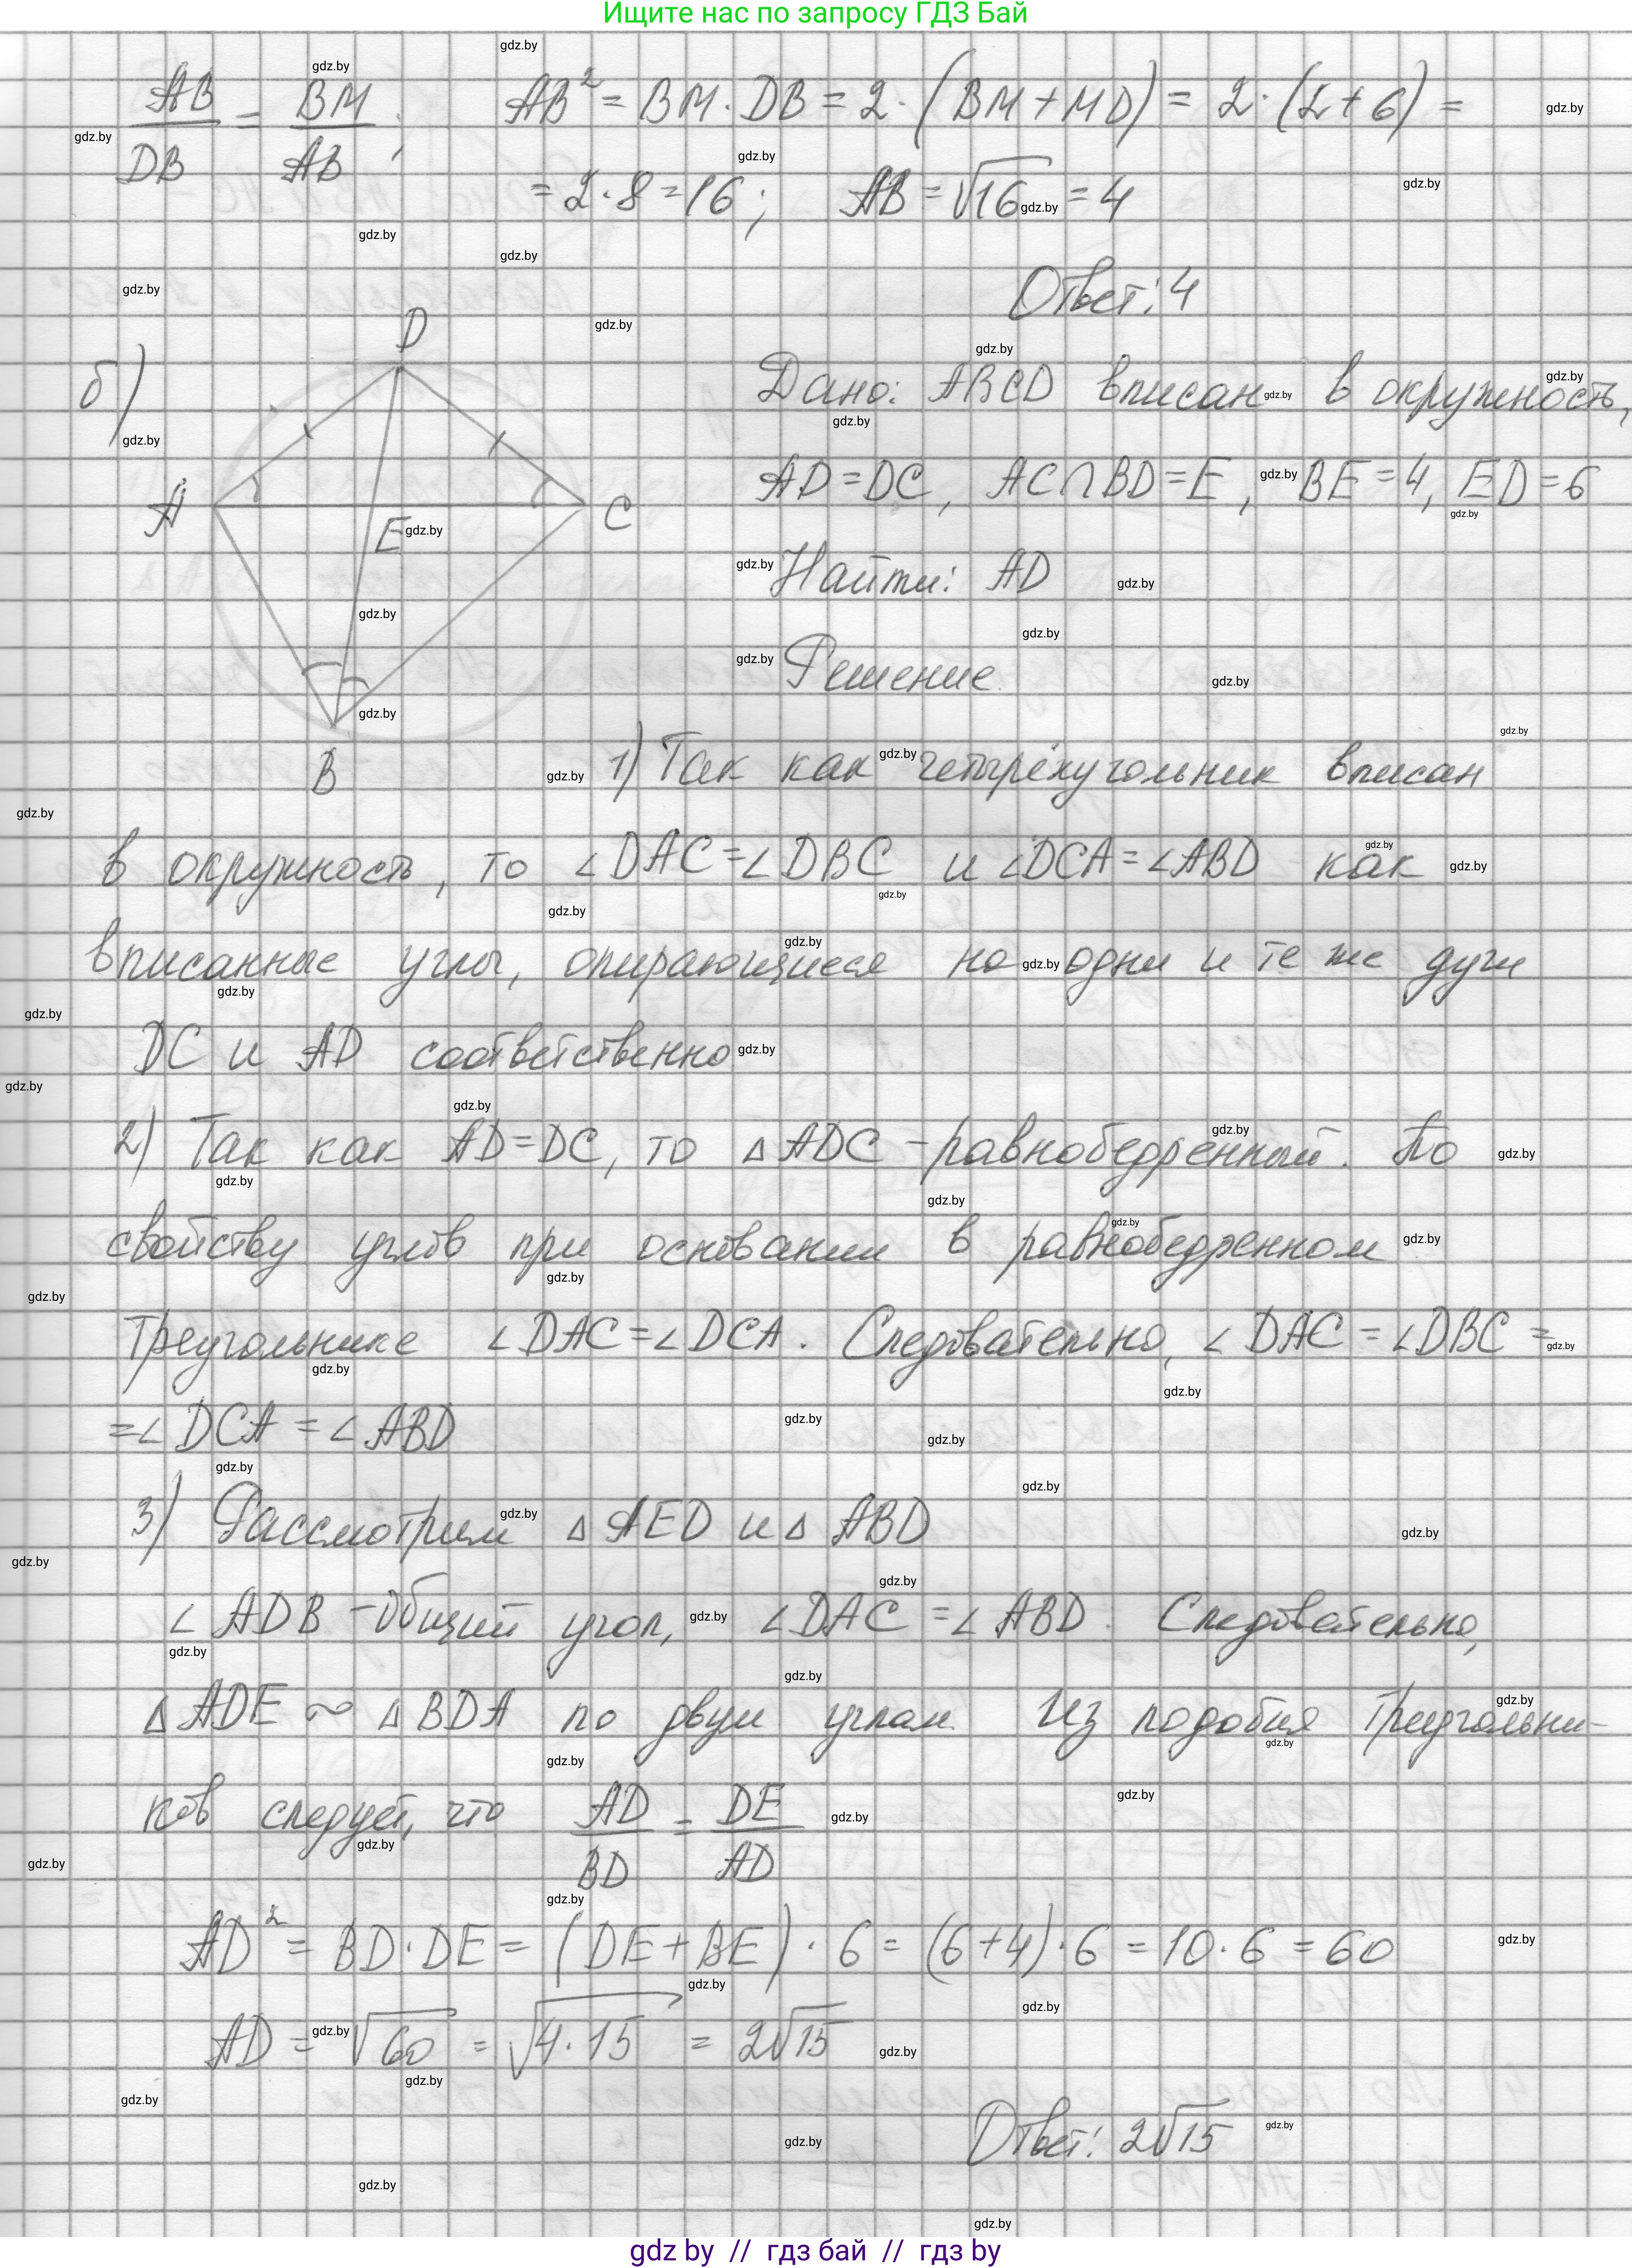 Ищите нас по запросу ГДЗ Бай
AB/DB = BM/AB; AB² = BM · DB = 2 · (BM + MD) = 2 · (2 + 6) =
= 2 · 8 = 16; AB = √16 = 4
Ответ: 4
б)
D
A
E
C
B
Дано: ABCD вписан в окружность,
AD = DC, AC ∩ BD = E, BE = 4, ED = 6
Найти: AD
Решение.
1) Так как четырёхугольник вписан
в окружность, то ∠DAC = ∠DBC и ∠DCA = ∠ABD как
вписанные углы, опирающиеся на одни и те же дуги
DC и AD соответственно.
2) Так как AD = DC, то △ADC - равнобедренный. По
свойству углов при основании в равнобедренном
треугольнике ∠DAC = ∠DCA. Следовательно, ∠DAC = ∠DBC =
= ∠DCA = ∠ABD
3) Рассмотрим △AED и △ABD
∠ADB - общий угол, ∠DAC = ∠ABD. Следовательно,
△ADE ~ △BDA по двум углам. Из подобия треугольни-
ков следует, что AD/BD = DE/AD
AD² = BD · DE = (DE + BE) · 6 = (6 + 4) · 6 = 10 · 6 = 60
AD = √60 = √4·15 = 2√15
Ответ: 2√15
gdz by // гдз бай // гдз by